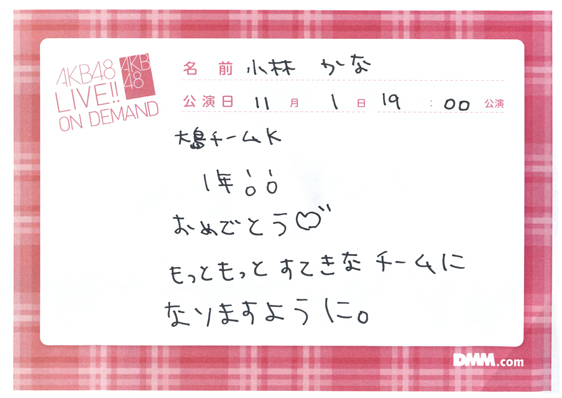 AKB48
LIVE!!
ON DEMAND
AKB
48
名前 小林 かな
公演日 11月 1日 19:00公演
大島チームK
1年!!
おめでとう♡
もっともっと すてきな チームに
なりますように。
DMM.com